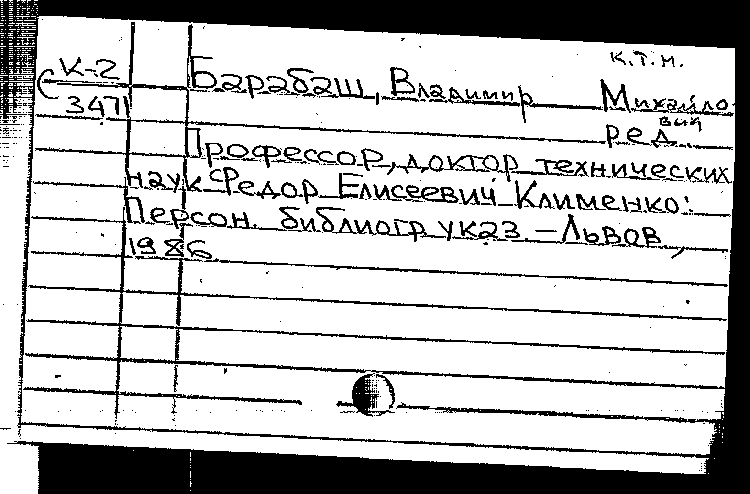 К.Т.Н.
К-2 Барабаш, Владимир Михайло-
вич
3471 ред.
Профессор, доктор технических
наук Федор Елисеевич Клименко:
Персон. библиогр. указ. – Львов,
1986